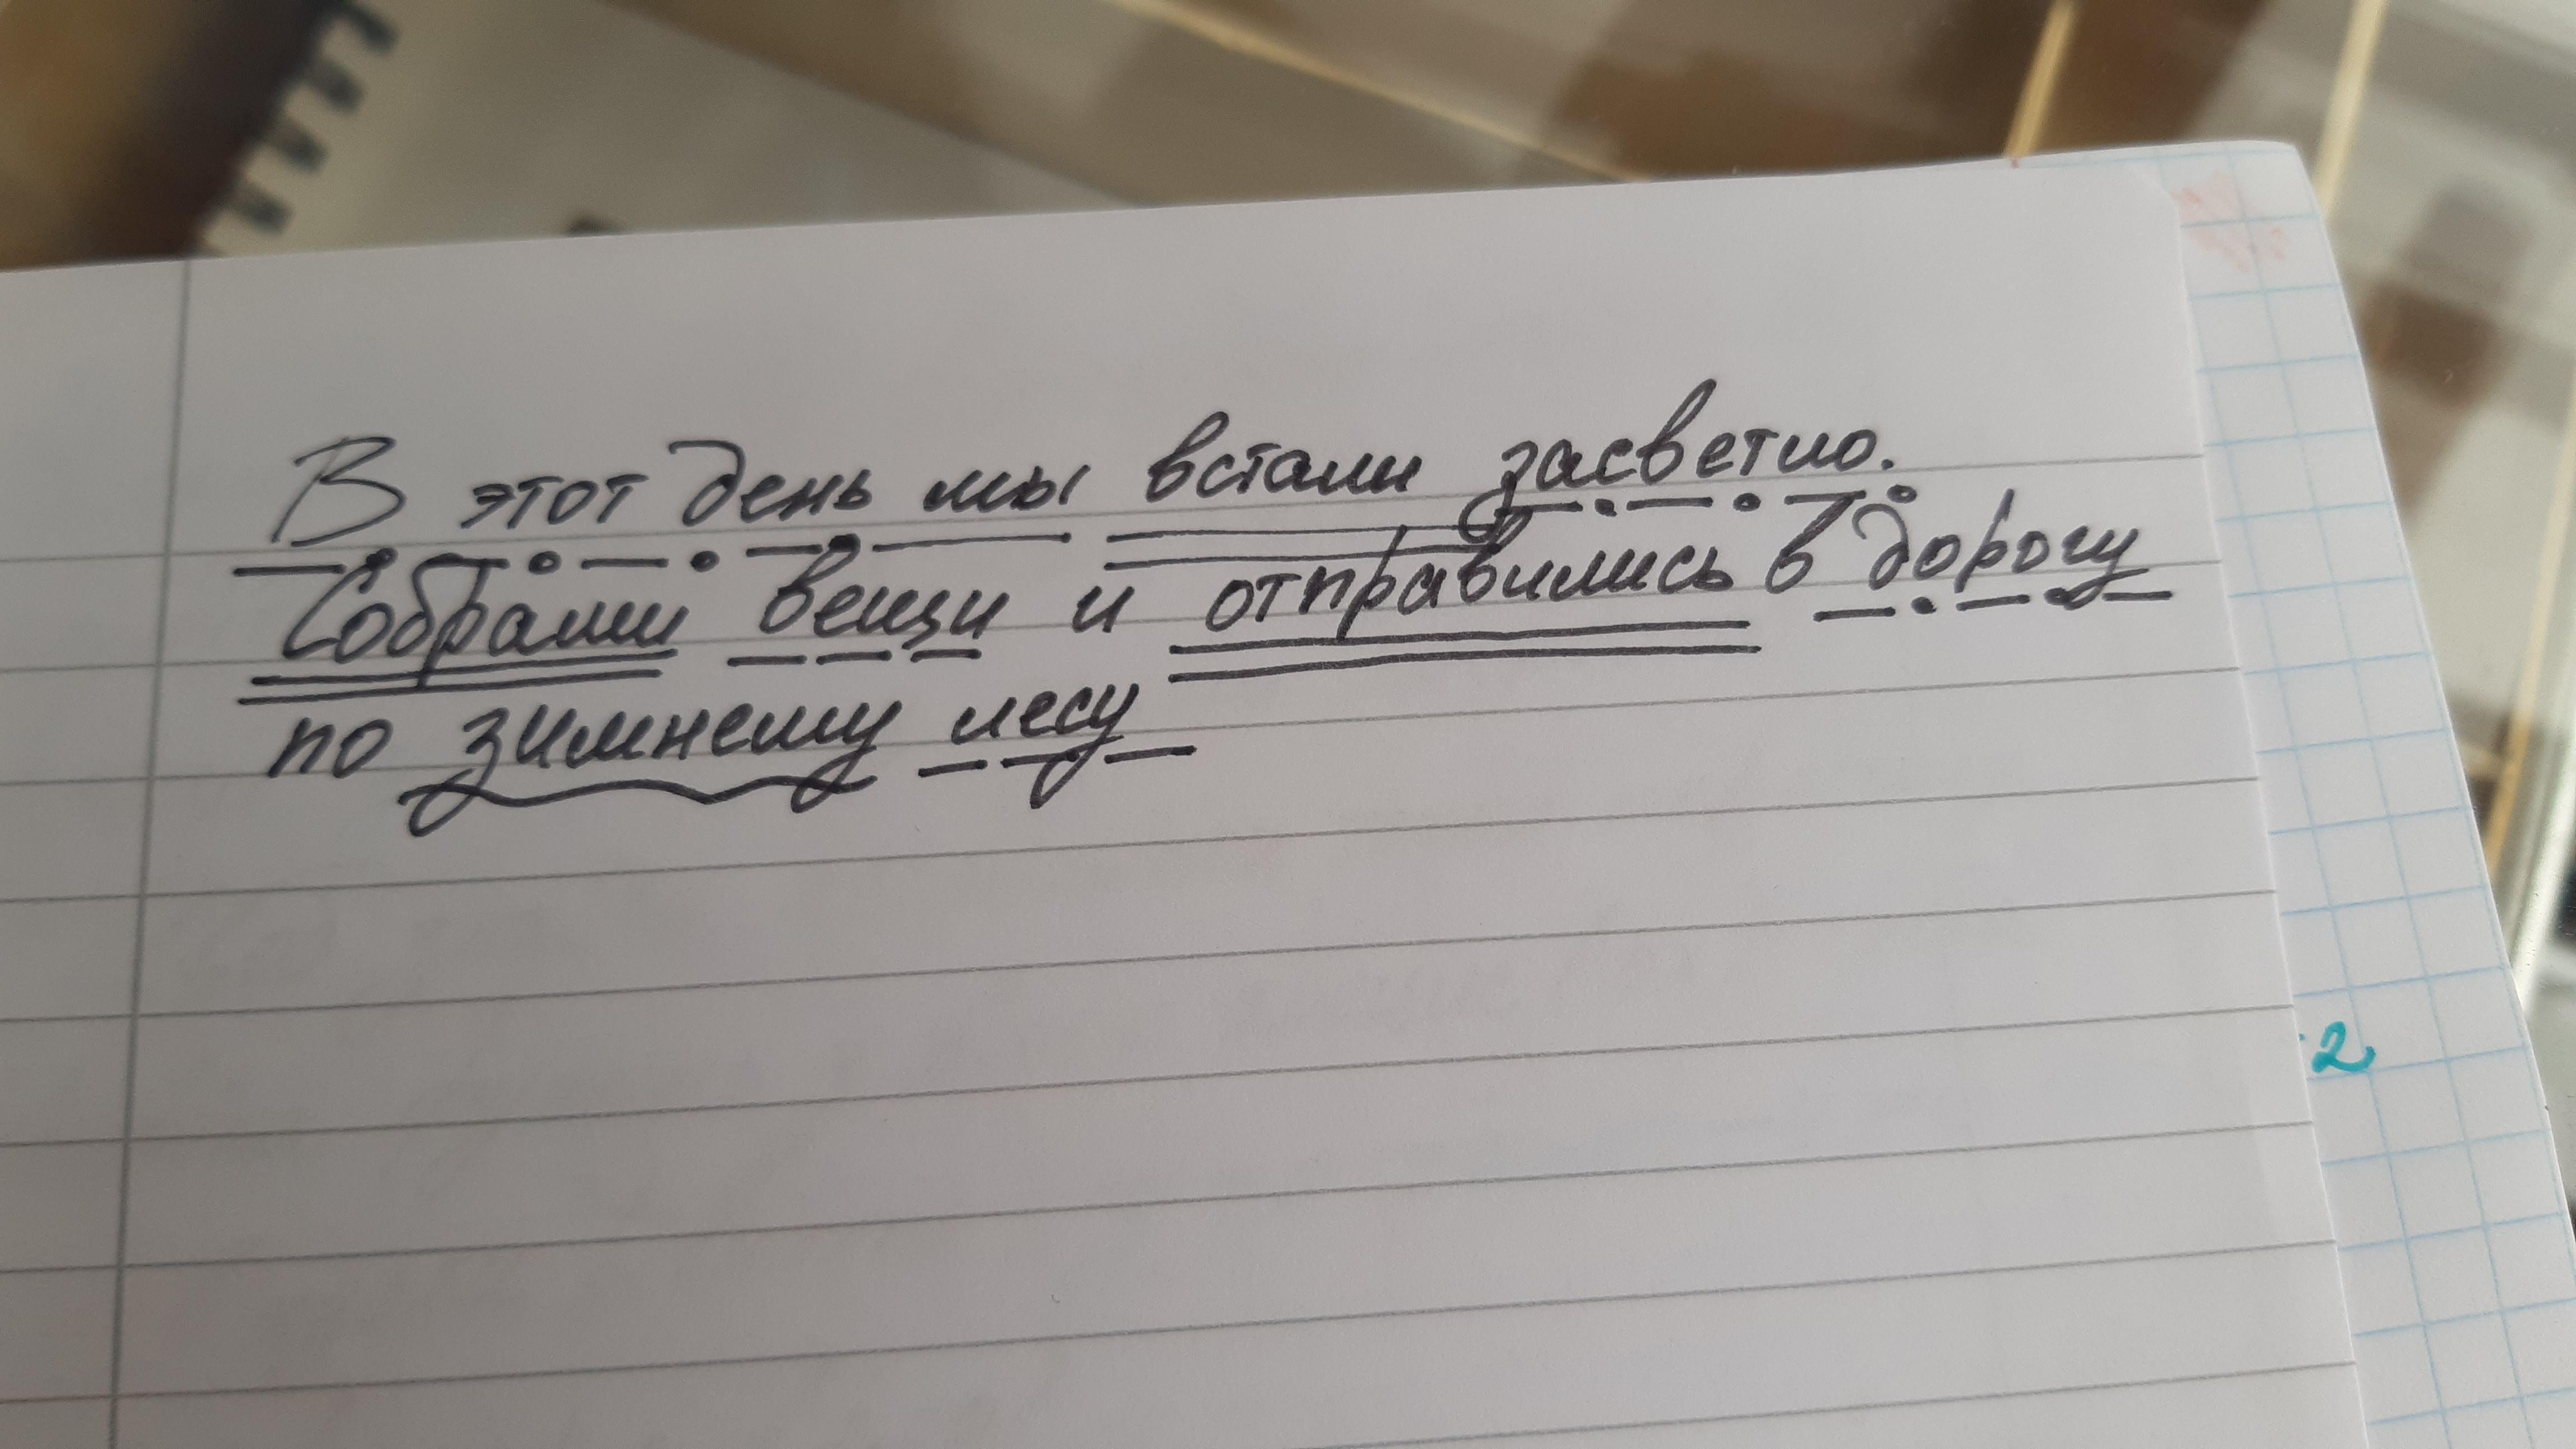 В этот день мы встали засветло.
Собрали вещи и отправились в дорогу
по зимнему лесу
2